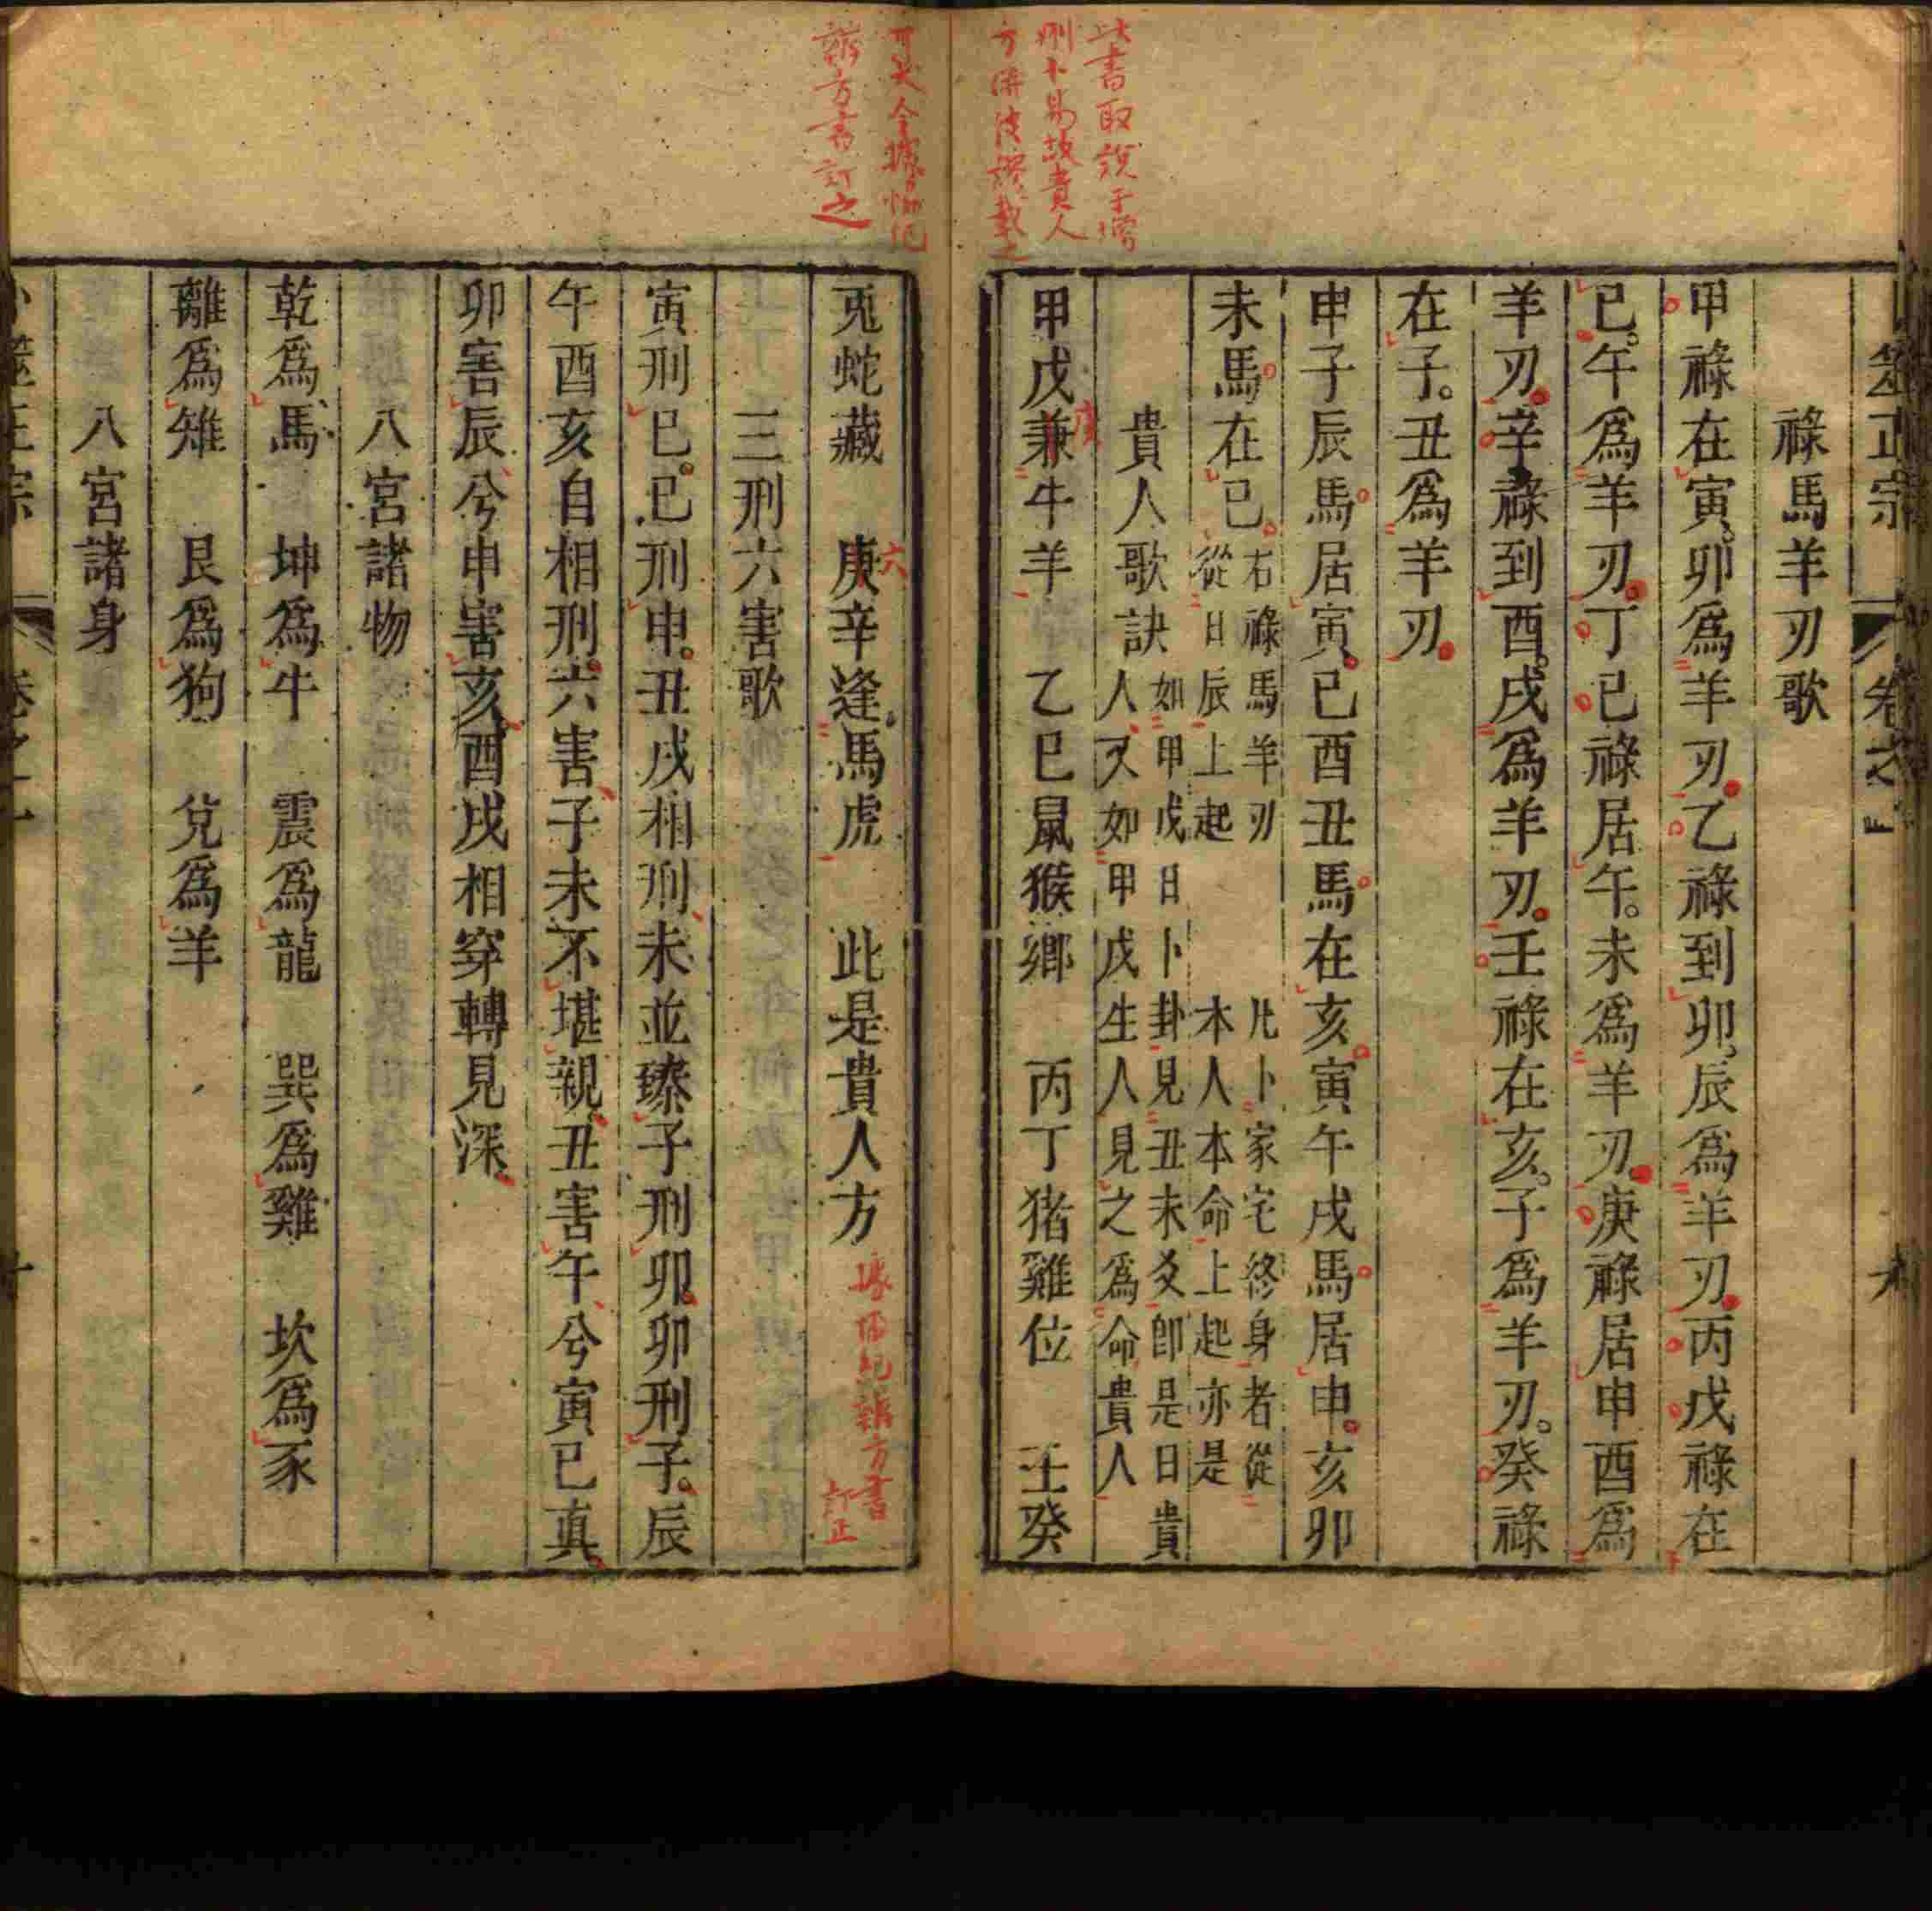 卜筮正宗 卷之一
祿馬羊刃歌
甲祿在寅卯爲羊刃乙祿到卯辰爲羊刃丙戊祿在
巳午爲羊刃丁巳祿居午未爲羊刃庚祿居申酉爲
羊刃辛祿到酉戌爲羊刃壬祿在亥子爲羊刃癸祿
在子丑爲羊刃
申子辰馬居寅巳酉丑馬在亥寅午戌馬居申亥卯
未馬在巳 右祿馬羊刃 凡卜家宅終身者從
從日辰上起 本人本命上起亦是
貴人歌訣 如甲戊日卜卦見丑未爻卽是日貴
人又如甲戊生人見之爲命貴人
甲戊兼牛羊 乙巳鼠猴鄉 丙丁猪雞位 壬癸
庚
此書取說于增
刪卜易故貴人
方併決謬載之
可笑今據協紀
辨方書訂之
兎蛇藏 庚辛逢馬虎 此是貴人方
六
據協紀辨方書
訂正
三刑六害歌
寅刑巳巳刑申丑戌相刑未並臻子刑卯卯刑子辰
午酉亥自相刑六害子未不堪親丑害午兮寅巳眞
卯害辰兮申害亥酉戌相穿轉見深
八宮諸物
乾爲馬 坤爲牛 震爲龍 巽爲雞 坎爲豕
離爲雉 艮爲狗 兌爲羊
八宮諸身
卜筮正宗 卷之一 十